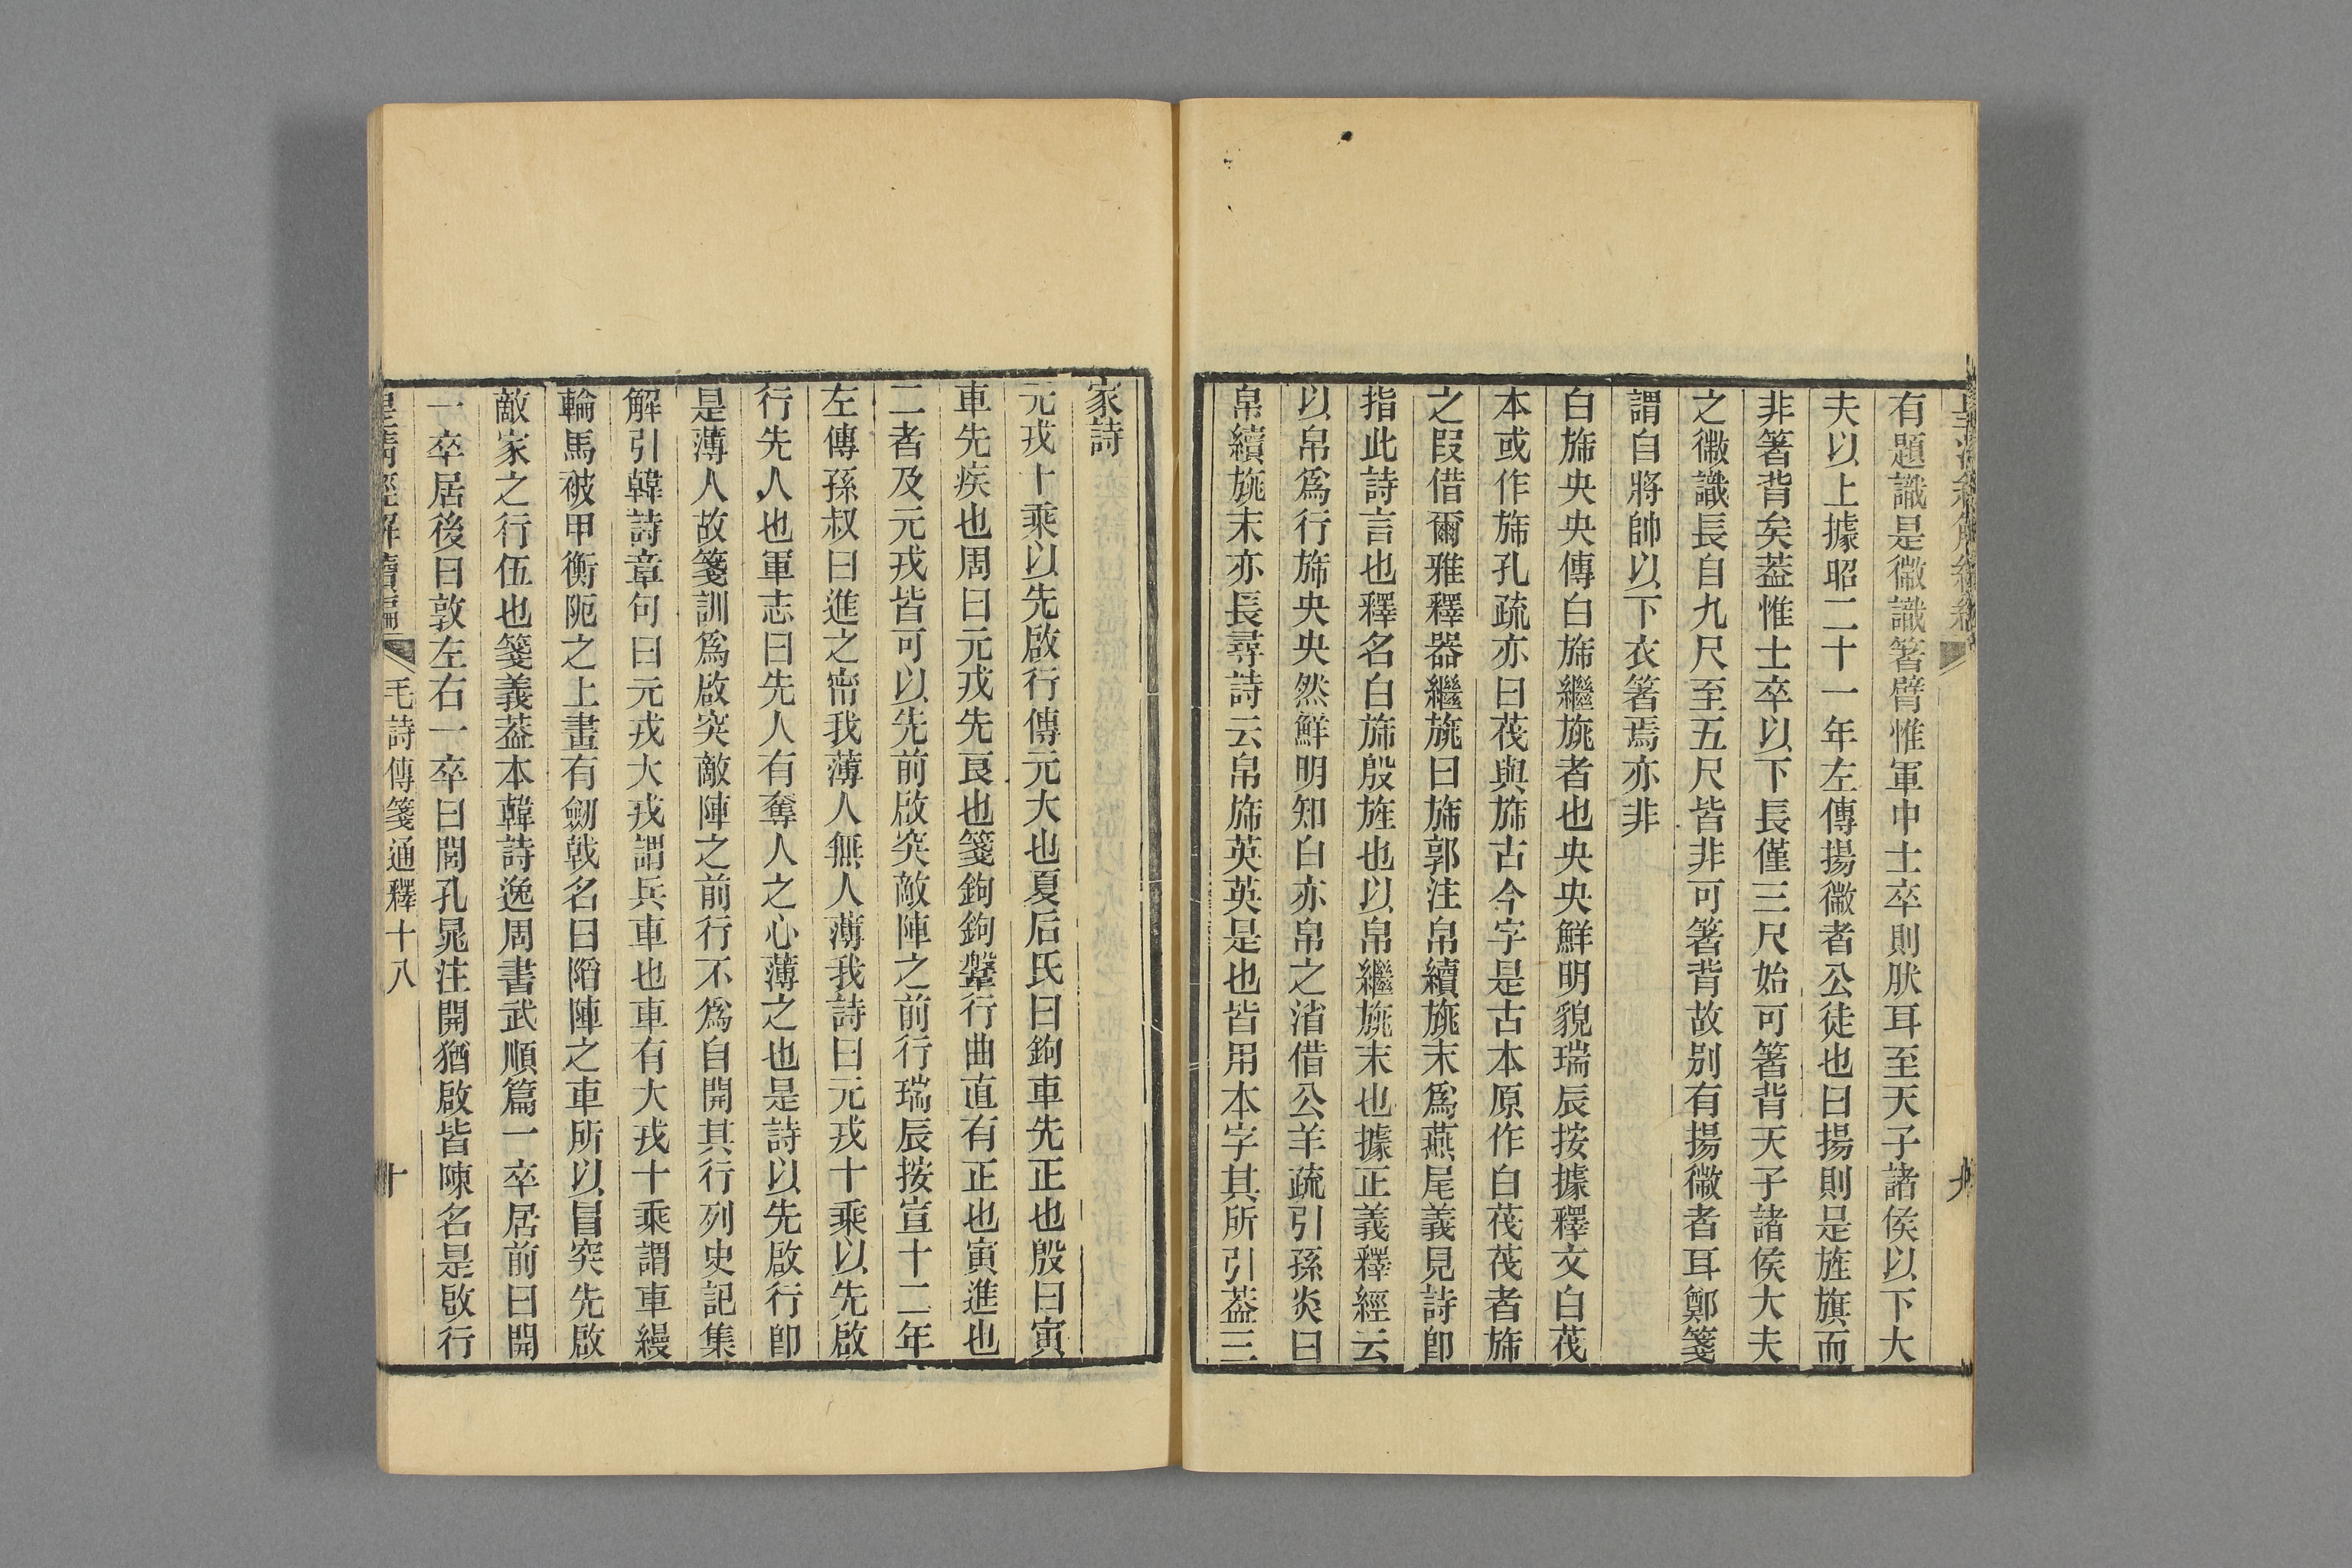 有題識是微識箸臂惟軍中士卒則肰耳至天子諸侯以下大
夫以上據昭二十一年左傳揚徽者公徒也曰揚則是旌旗而
非箸背矣葢惟士卒以下長僅三尺始可箸背天子諸侯大夫
之徽識長自九尺至五尺皆非可箸背故别有揚徽者耳鄭箋
謂自將帥以下衣箸焉亦非
白斾央央傳白斾繼旐者也央央鮮明貌瑞辰按據釋文白茷
本或作斾孔疏亦曰茷與斾古今字是古本原作白茷茷者斾
之叚借爾雅釋器繼旐曰斾郭注帛續旐末爲燕尾義見詩卽
指此詩言也釋名白斾殷旌也以帛繼旐末也據正義釋經云
以帛爲行斾央央然鮮明知白亦帛之渻借公羊疏引孫炎曰
帛續旐末亦長尋詩云帛斾英英是也皆用本字其所引葢三
家詩
元戎十乘以先啟行傳元大也夏后氏曰鉤車先正也殷曰寅
車先疾也周曰元戎先良也箋鉤鉤鞶行曲直有正也寅進也
二者及元戎皆可以先前啟突敵陣之前行瑞辰按宣十二年
左傳孫叔曰進之甯我薄人無人薄我詩曰元戎十乘以先啟
行先人也軍志曰先人有奪人之心薄之也是詩以先啟行卽
是薄人故箋訓爲啟突敵陣之前行不爲自開其行列史記集
解引韓詩章句曰元戎大戎謂兵車也車有大戎十乘謂車縵
輪馬被甲衡阨之上畫有劒戟名曰陷陣之車所以冒突先啟
敵家之行伍也箋義葢本韓詩逸周書武順篇一卒居前曰開
一卒居後曰敦左右一卒曰閭孔晁注開猶啟皆陳名是啟行
皇清經解續編 毛詩傳箋通釋十八 十